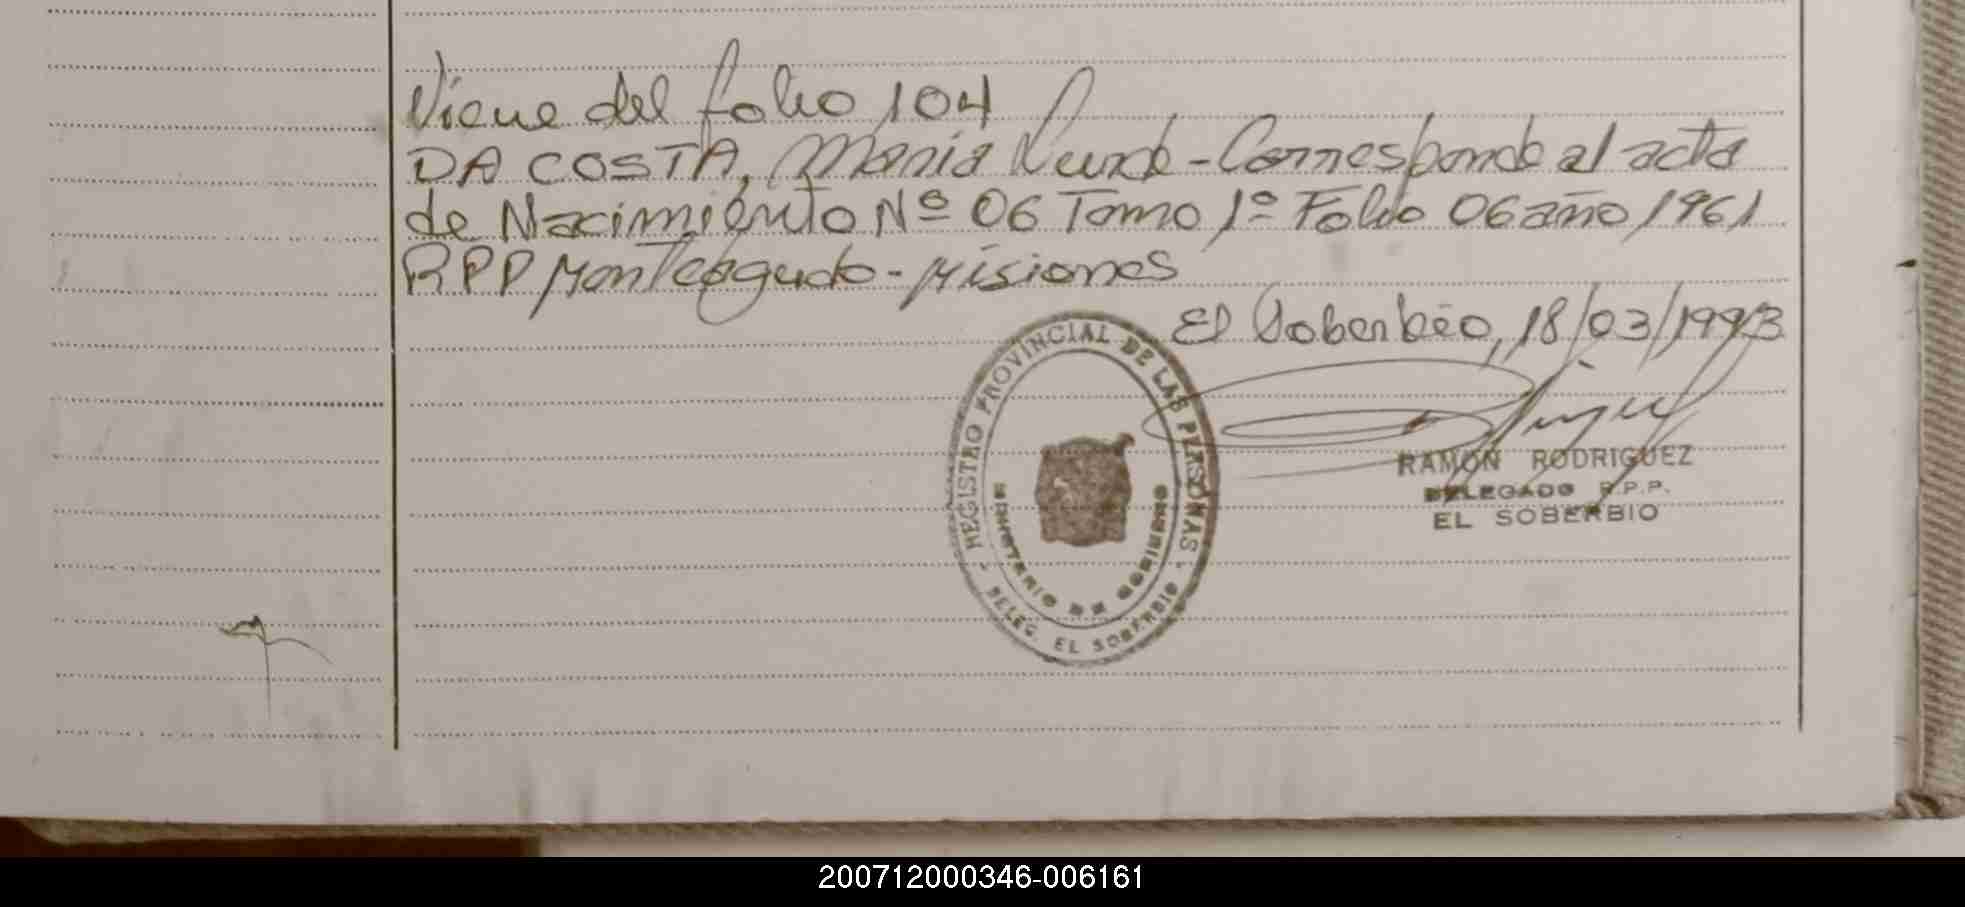 Viene del folio 104
DA COSTA, Maria - Corresponde al acta
de Nacimiento Nº 06 Tomo 1º Folio 06 año 1961
RPP Monteagudo - Misiones
El Soberbio, 18/03/1993
REGISTRO PROVINCIAL DE LAS PERSONAS
MINISTERIO DE GOBIERNO
- DELEG. EL SOBERBIO -
RAMÓN RODRIGUEZ
DELEGADO R.P.P.
EL SOBERBIO
200712000346-006161